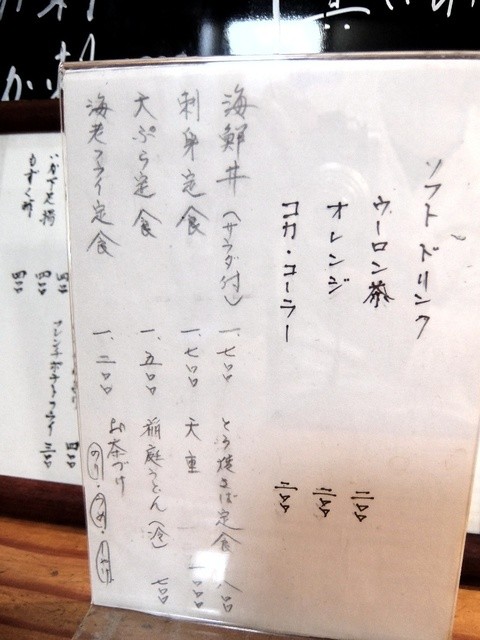 ソフトドリンク
ウーロン茶 三〇〇
オレンジ 三〇〇
コカ・コーラー 三〇〇
海鮮丼(サラダ付) 一、七〇〇
刺身定食 一、七〇〇
天ぷら定食 一、五〇〇
海老フライ定食 一、二〇〇
とろ焼さば定食 八〇〇
天重 一〇〇〇
稲庭うどん(冷) 七〇〇
お茶づけ
のり・うめ・
いか下足揚
もずく酢
フレンチポテトフライ 三〇〇